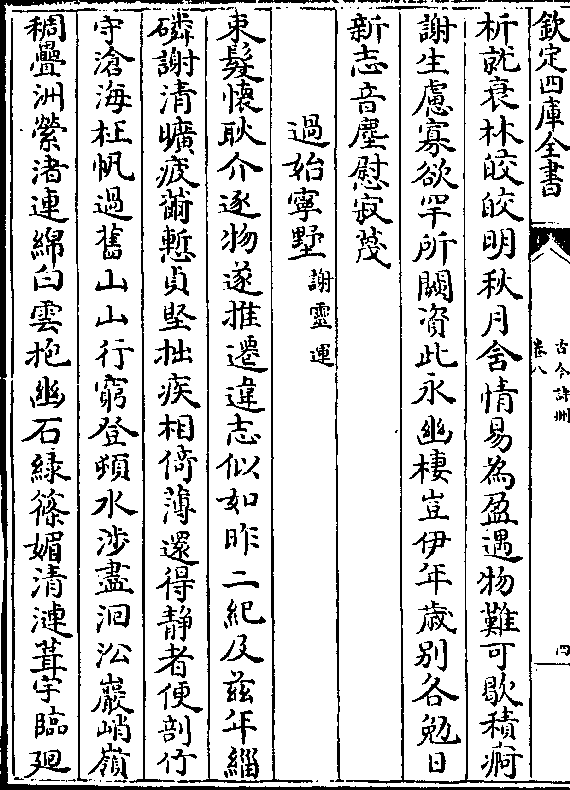 欽定四庫全書
古今詩刪
卷八
四
析就衰林皎皎明秋月含情易為盈遇物難可歇積痾
謝生慮寡欲罕所闕資此永幽棲豈伊年歲別各勉日
新志音塵慰寂蔑
過始寧墅
謝靈運
束髮懷耿介逐物遂推遷違志似如昨二紀及茲年緇
磷謝清曠疲薾慙貞堅拙疾相倚薄還得靜者便剖竹
守滄海枉帆過舊山山行窮登頻水涉盡洄沿巖峭嶺
稠疊洲縈渚連綿白雲抱幽石綠篠媚清漣葺宇臨廻